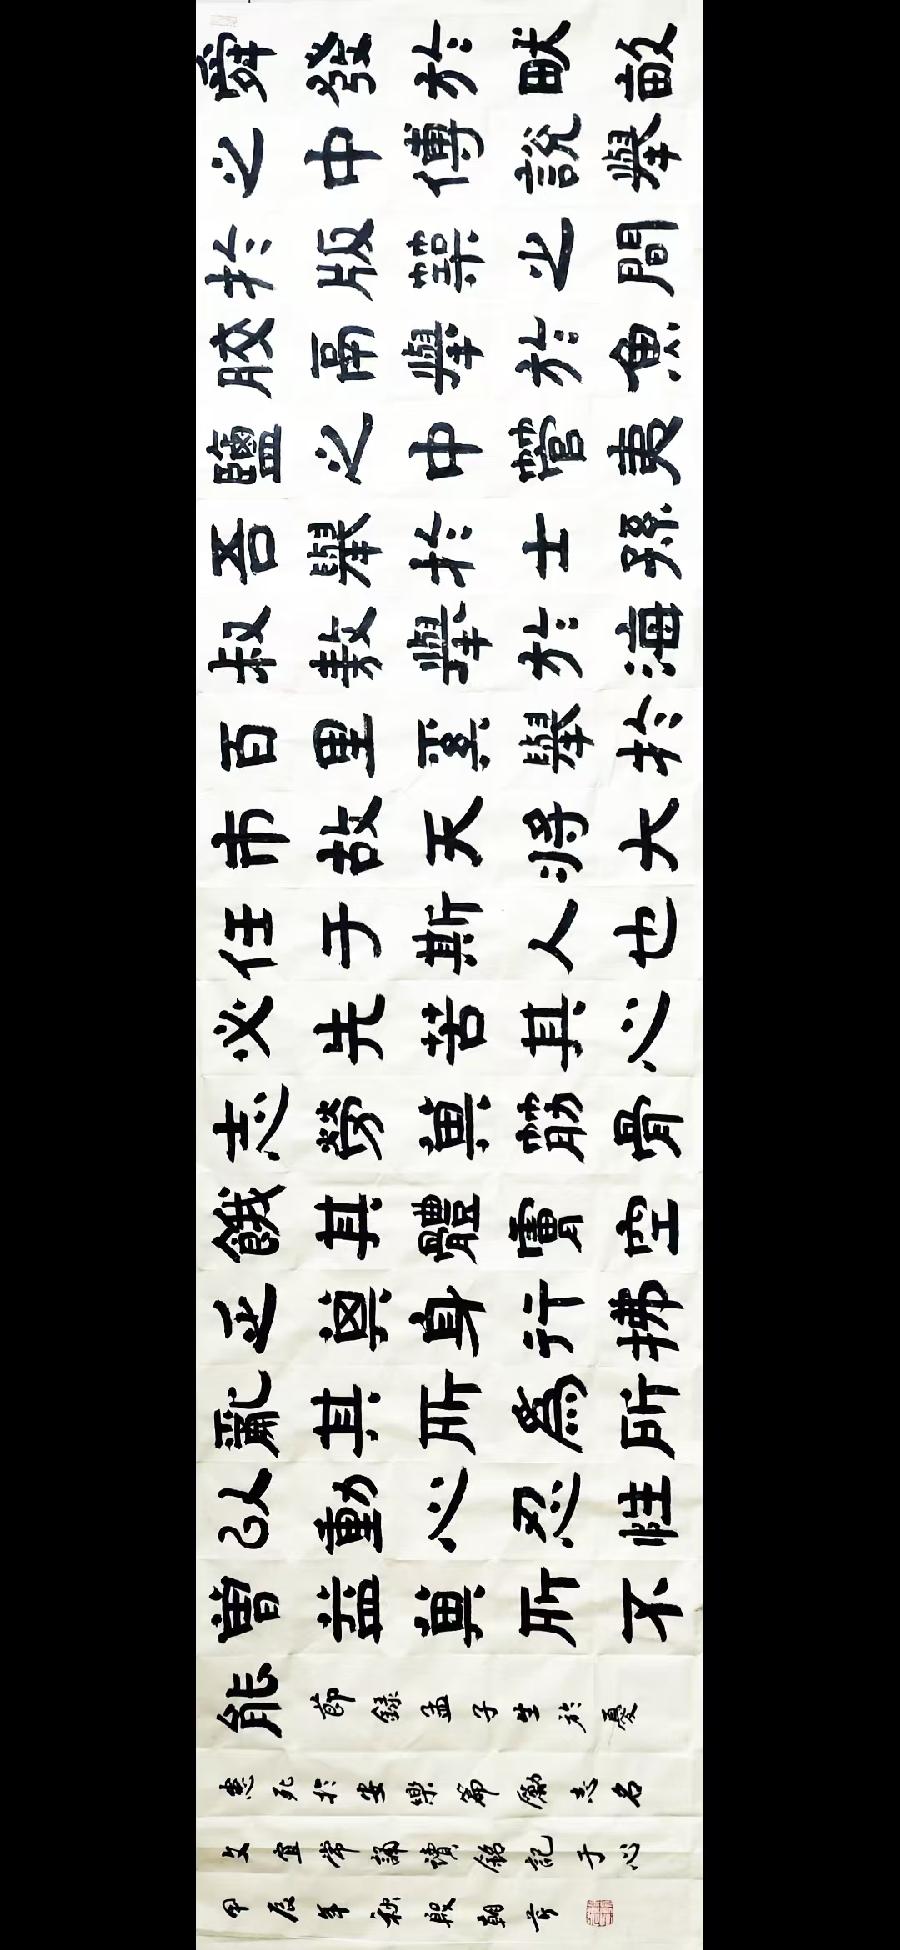 舜發於畎畝
之中傅說舉
於版築之間
膠鬲舉於魚
鹽之中管夷
吾舉於士孫
叔敖舉於海
百里奚舉於
市故天將大
任于斯人也
必先苦其心
志勞其筋骨
餓其體膚空
乏其身行拂
亂其所為所
以動心忍性
曾益其所不
能 節錄孟子生於憂
患死於安樂篇勵志名
文宜常誦讀銘記于心
甲辰年秋殷朝